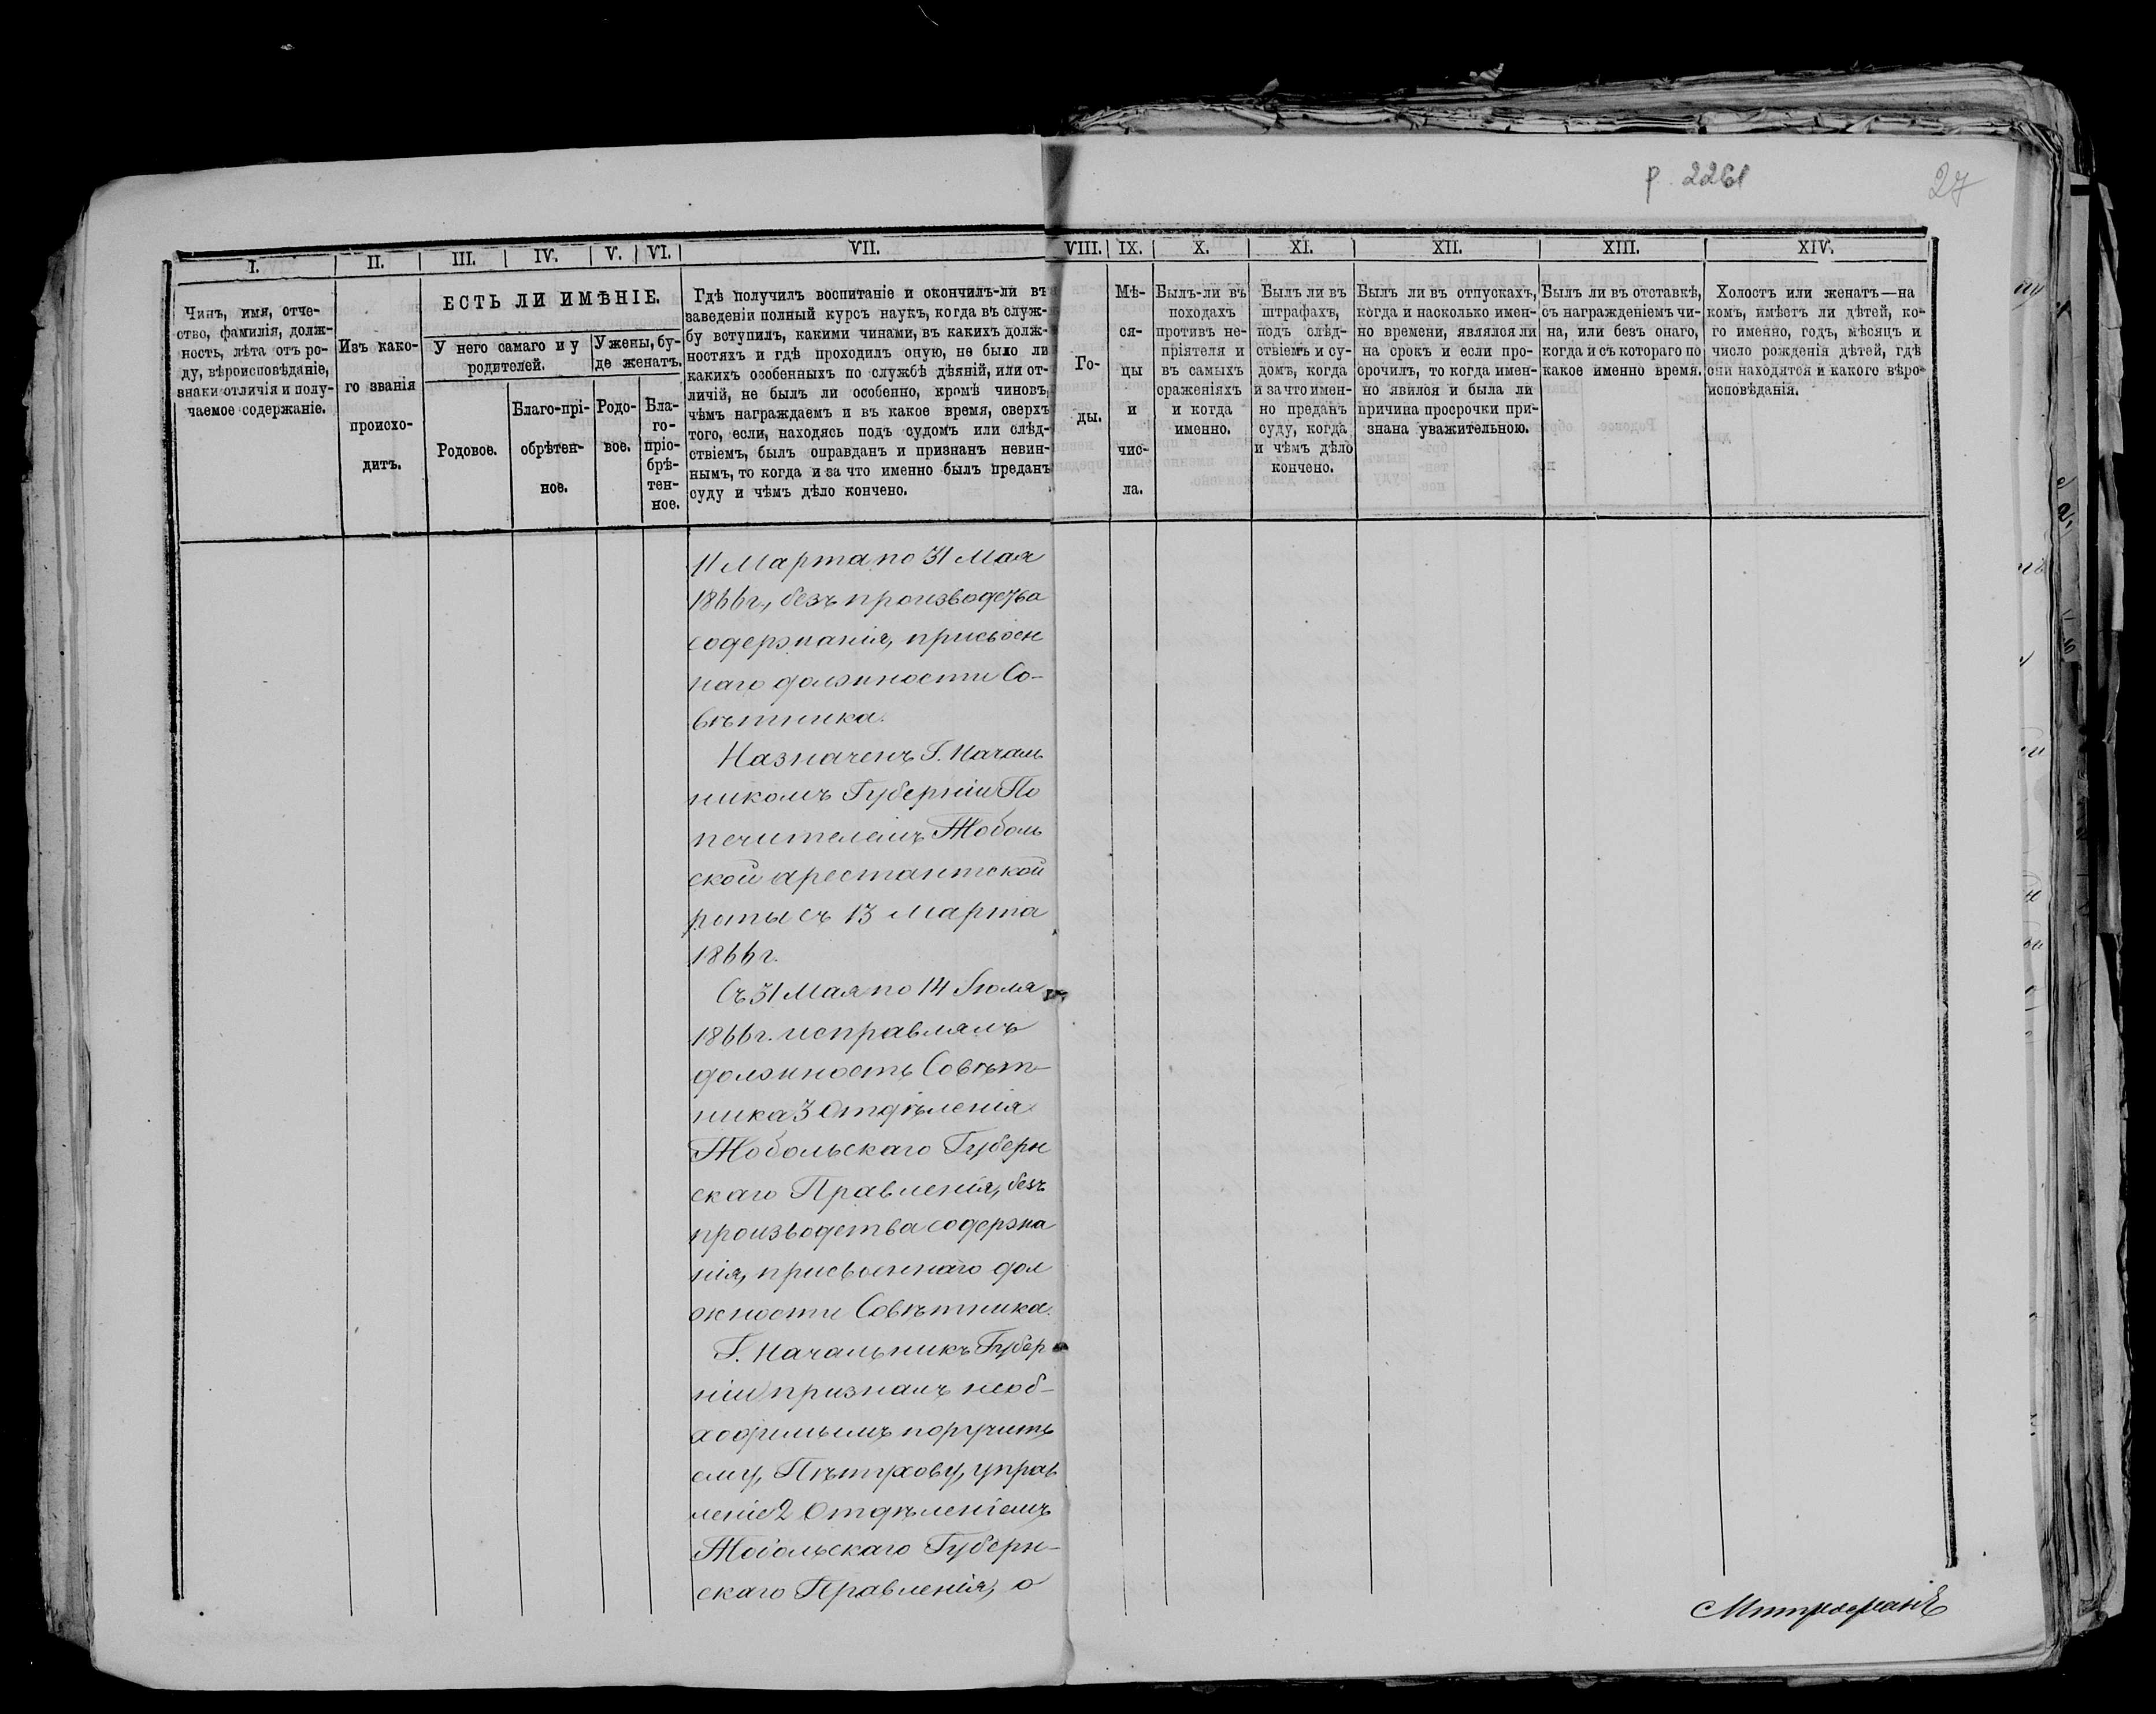 р. 2261
27
I.
II.
III.
IV.
V.
VI.
VII.
VIII.
IX.
X.
XI.
XII.
XIII.
XIV.
Чинъ, имя, отче-
ство, фамилія, долж-
ность, лѣта отъ ро-
ду, вѣроисповѣданіе,
знаки отличія и полу-
чаемое содержаніе.
Изъ како-
го званія
происхо-
дитъ.
ЕСТЬ ЛИ ИМѢНІЕ.
У него самаго и у
родителей.
У жены, бу-
де женатъ.
Родовое.
Благо-прі-
обрѣтен-
ное.
Родо-
вое.
Бла-
го-
пріо-
брѣ-
тен-
ное.
Гдѣ получилъ воспитаніе и окончилъ-ли въ
заведеніи полный курсъ наукъ, когда въ служ-
бу вступилъ, какими чинами, въ какихъ долж-
ностяхъ и гдѣ проходилъ оную, не было ли
какихъ особенныхъ по службѣ дѣяній, или от-
личій, не былъ ли особенно, кромѣ чиновъ,
чѣмъ награждаемъ и въ какое время, сверхъ
того, если, находясь подъ судомъ или слѣд-
ствіемъ, былъ оправданъ и признанъ невин-
нымъ, то когда и за что именно былъ преданъ
суду и чѣмъ дѣло кончено.
Го-
ды.
Мѣ-
ся-
цы
и
чис-
ла.
Былъ-ли въ
походахъ
противъ не-
пріятеля и
въ самыхъ
сраженіяхъ
и когда
именно.
Былъ ли въ
штрафахъ,
подъ слѣд-
ствіемъ и су-
домъ, когда
и за что имен-
но преданъ
суду, когда
и чѣмъ дѣло
кончено.
Былъ ли въ отпускахъ,
когда и насколько имен-
но времени, являлся ли
на срокъ и если про-
срочилъ, то когда имен-
но явился и была ли
причина просрочки при-
знана уважительною.
Былъ ли въ отставкѣ,
съ награжденіемъ чи-
на, или безъ онаго,
когда и съ котораго по
какое именно время.
Холостъ или женатъ—на
комъ, имѣетъ ли дѣтей, ко-
го именно, годъ, мѣсяцъ и
число рожденія дѣтей, гдѣ
они находятся и какого вѣро-
исповѣданія.
11 Марта по 31 Мая
1866 г., безъ производства
содержанія, присвоен
наго должности Со-
вѣтника.
Назначенъ Г. Началь
никомъ Губерніи По
печителемъ Тоболь
ской арестантской
роты съ 13 Марта
1866 г.
Съ 31 Мая по 14 Іюля
1866 г. исправлялъ
должность Совѣт-
ника 3 Отдѣленія
Тобольскаго Губерн
скаго Правленія, безъ
производства содержа
нія, присвоеннаго дол
жности Совѣтника.
Г. Начальникъ Губер
ніи призналъ необ-
ходимымъ поручить
ему, Пѣтухову, управ
леніе 2 Отдѣленіемъ
Тобольскаго Губерн-
скаго Правленія, о